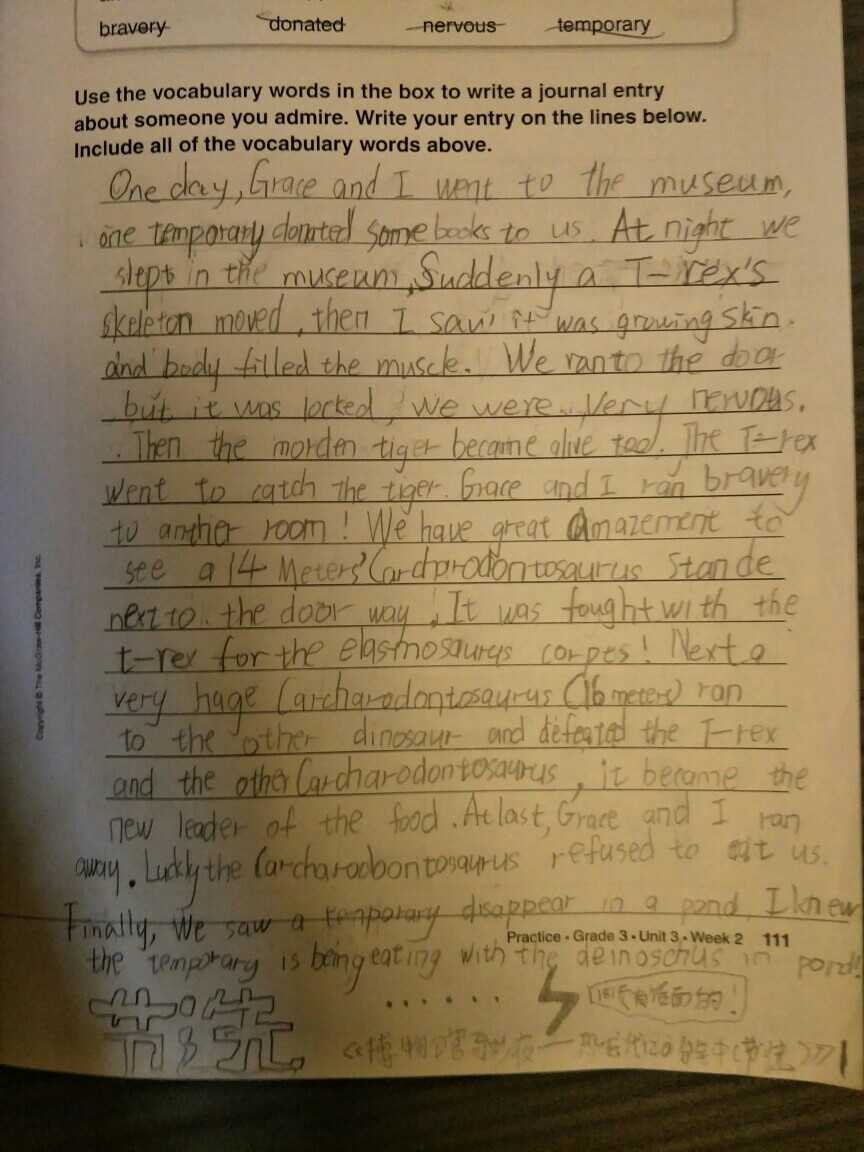 bravery donated nervous temporary
Use the vocabulary words in the box to write a journal entry
about someone you admire. Write your entry on the lines below.
Include all of the vocabulary words above.
One day, Grace and I went to the museum,
one temporary donated some books to us. At night we
slept in the museum, Suddenly a T-rex's
skeleton moved, then I saw it was growing skin.
and body filled the muscle. We ran to the door
but it was locked, we were very nervous.
Then the morden tiger became alive too. The T-rex
went to catch the tiger. Grace and I ran bravery
to another room! We have great Amazement to
see a 14 Meters' Carcharodontosaurus Stande
next to the door way. It was fought with the
t-rex for the elasmosaurus corpes! Next a
very huge Carcharodontosaurus (16 meters) ran
to the other dinosaur and defeated the T-rex
and the other Carcharodontosaurus, it became the
new leader of the food. At last, Grace and I ran
away. Luckly the Carcharodontosaurus refused to eat us.
Finally, We saw a temporary disappear in a pond, I knew
Practice • Grade 3 • Unit 3 • Week 2 111
the temporary is being eating with the deinoschus in pond!
......
Copyright © The McGraw-Hill Companies, Inc.